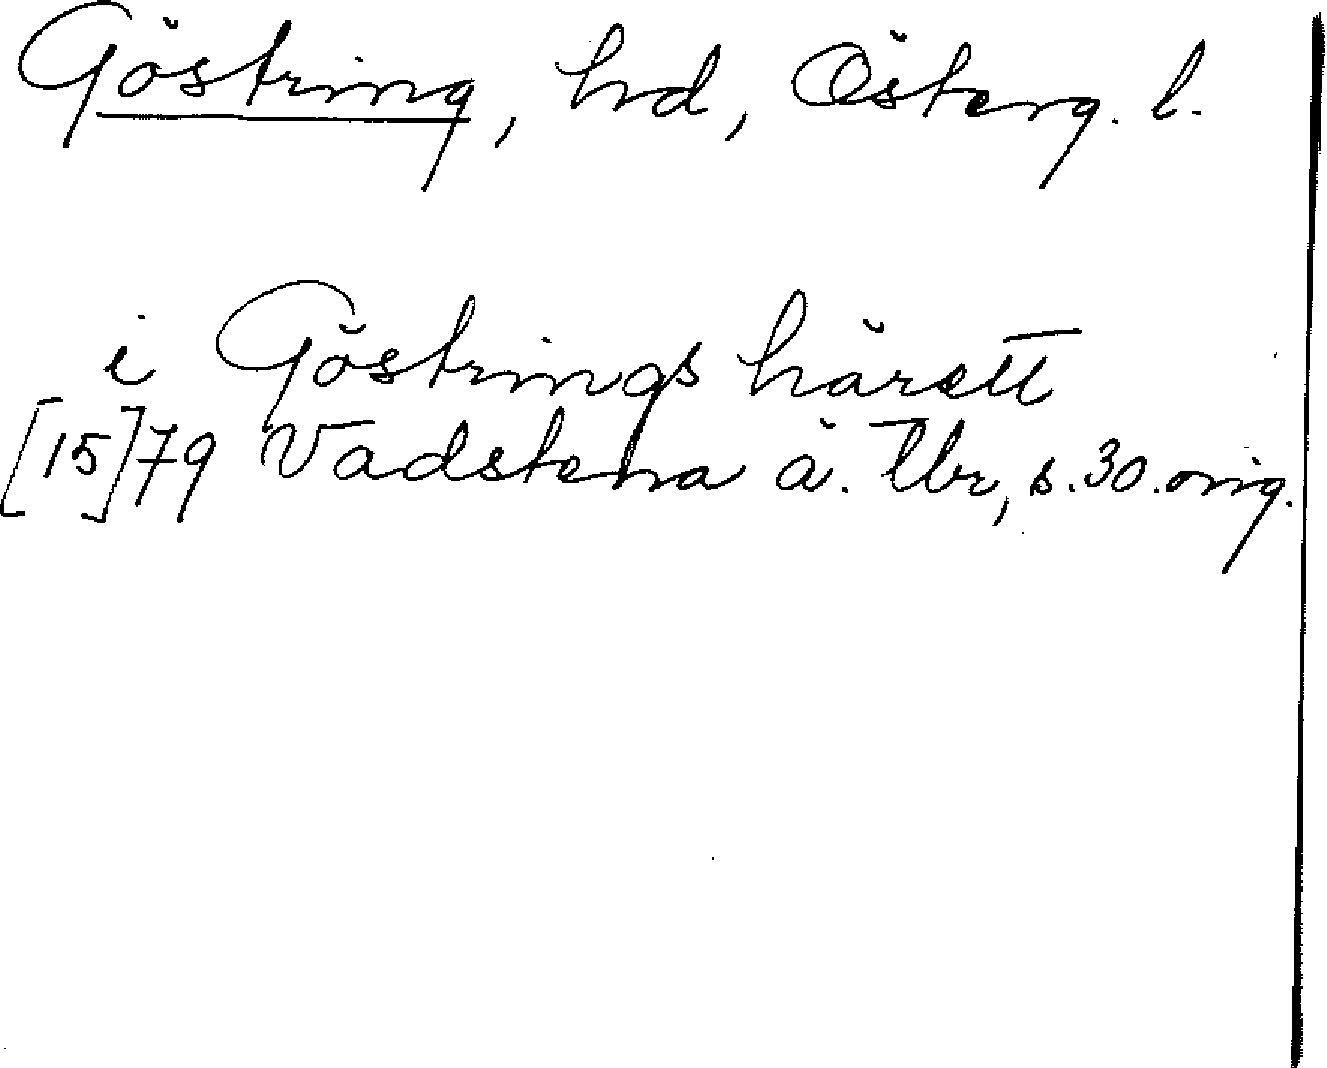 Göstring, hd, Österg. l.
i Göstrings härett
[15]79 Vadstena ä. Tbr, s. 30. orig.